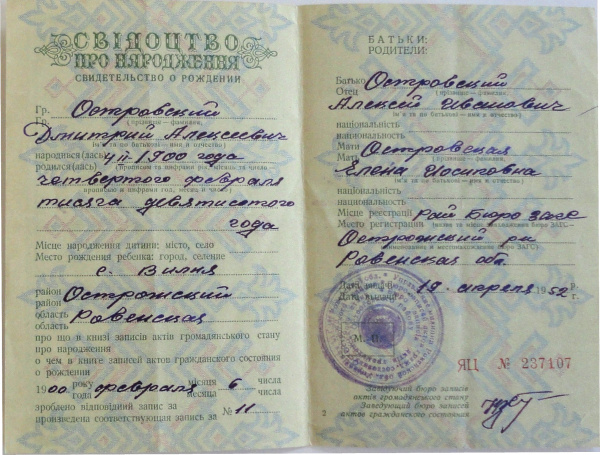 СВІДОЦТВО
ПРО НАРОДЖЕННЯ
СВИДЕТЕЛЬСТВО О РОЖДЕНИИ
Гр. Островский
Гр.
(прізвище — фамилия,
Дмитрий Алексеевич
ім'я та по батькові — имя и отчество)
народився(лась) 4/II-1900 года
родился(лась)
четвертого февраля
тысяча девятисотого
года
Місце народження дитини: місто, село
Место рождения ребенка: город, селение
с. Вилия
район Острожский
район
область Ровенская
область
про що в книзі записів актів громадянського стану
про народження
о чем в книге записей актов гражданского состояния
о рождении
1900 року февраля місяця 6 числа
года месяца числа
зроблено відповідний запис за № 11
произведена соответствующая запись за
БАТЬКИ:
РОДИТЕЛИ:
Батько Островский
Отец (прізвище — фамилия,
Алексей Иванович
ім'я та по батькові — имя и отчество)
національність
национальность
Мати Островская
Мать (прізвище — фамилия,
Елена Иосиповна
ім'я та по батькові — имя и отчество)
національність
национальность
Місце реєстрації Рай Бюро Загс
Место регистрации
Острожский рн
Ровенская обл
Дата видачі 19 апреля 1952 р.
Дата выдачи г.
М. П.
ЯЦ № 237107
Завідуючий бюро записів
актів громадянського стану
Заведующий бюро записей
актов гражданского состояния
2